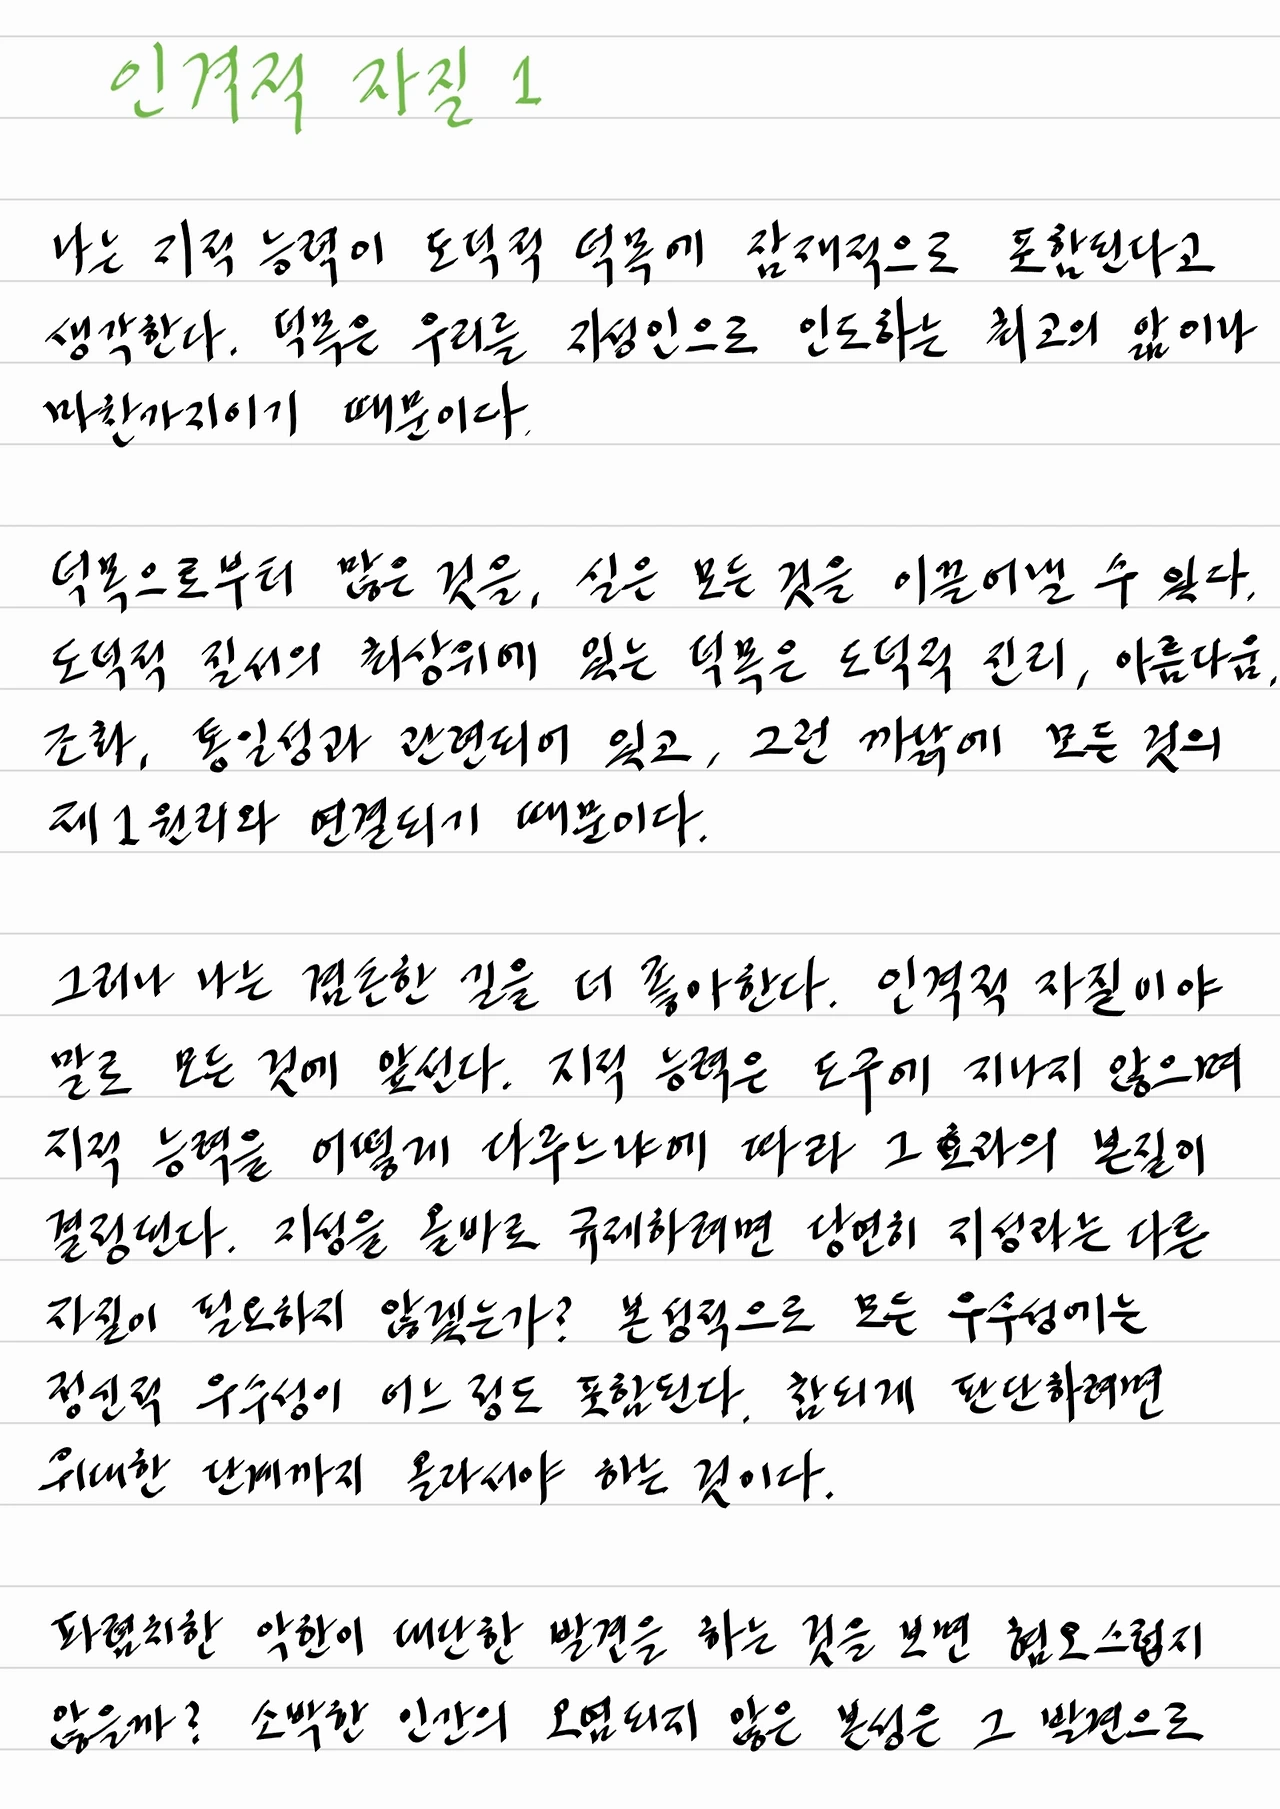 인격적 자질 1
나는 지적 능력이 도덕적 덕목에 잠재적으로 포함된다고
생각한다. 덕목은 우리를 지성인으로 인도하는 최고의 앎이나
마찬가지이기 때문이다.
덕목으로부터 많은 것을, 실은 모든 것을 이끌어낼 수 있다.
도덕적 질서의 최상위에 있는 덕목은 도덕적 진리, 아름다움,
조화, 통일성과 관련되어 있고, 그런 까닭에 모든 것의
제1원리와 연결되기 때문이다.
그러나 나는 겸손한 길을 더 좋아한다. 인격적 자질이야
말로 모든 것에 앞선다. 지적 능력은 도구에 지나지 않으며
지적 능력을 어떻게 다루느냐에 따라 그 효과의 본질이
결정된다. 지성을 올바로 규제하려면 당연히 지성과는 다른
자질이 필요하지 않겠는가? 본성적으로 모든 우수성에는
정신적 우수성이 어느 정도 포함된다. 참되게 판단하려면
위대한 단계까지 올라서야 하는 것이다.
파렴치한 악한이 대단한 발견을 하는 것을 보면 혐오스럽지
않을까? 소박한 인간의 오염되지 않은 본성은 그 발견으로